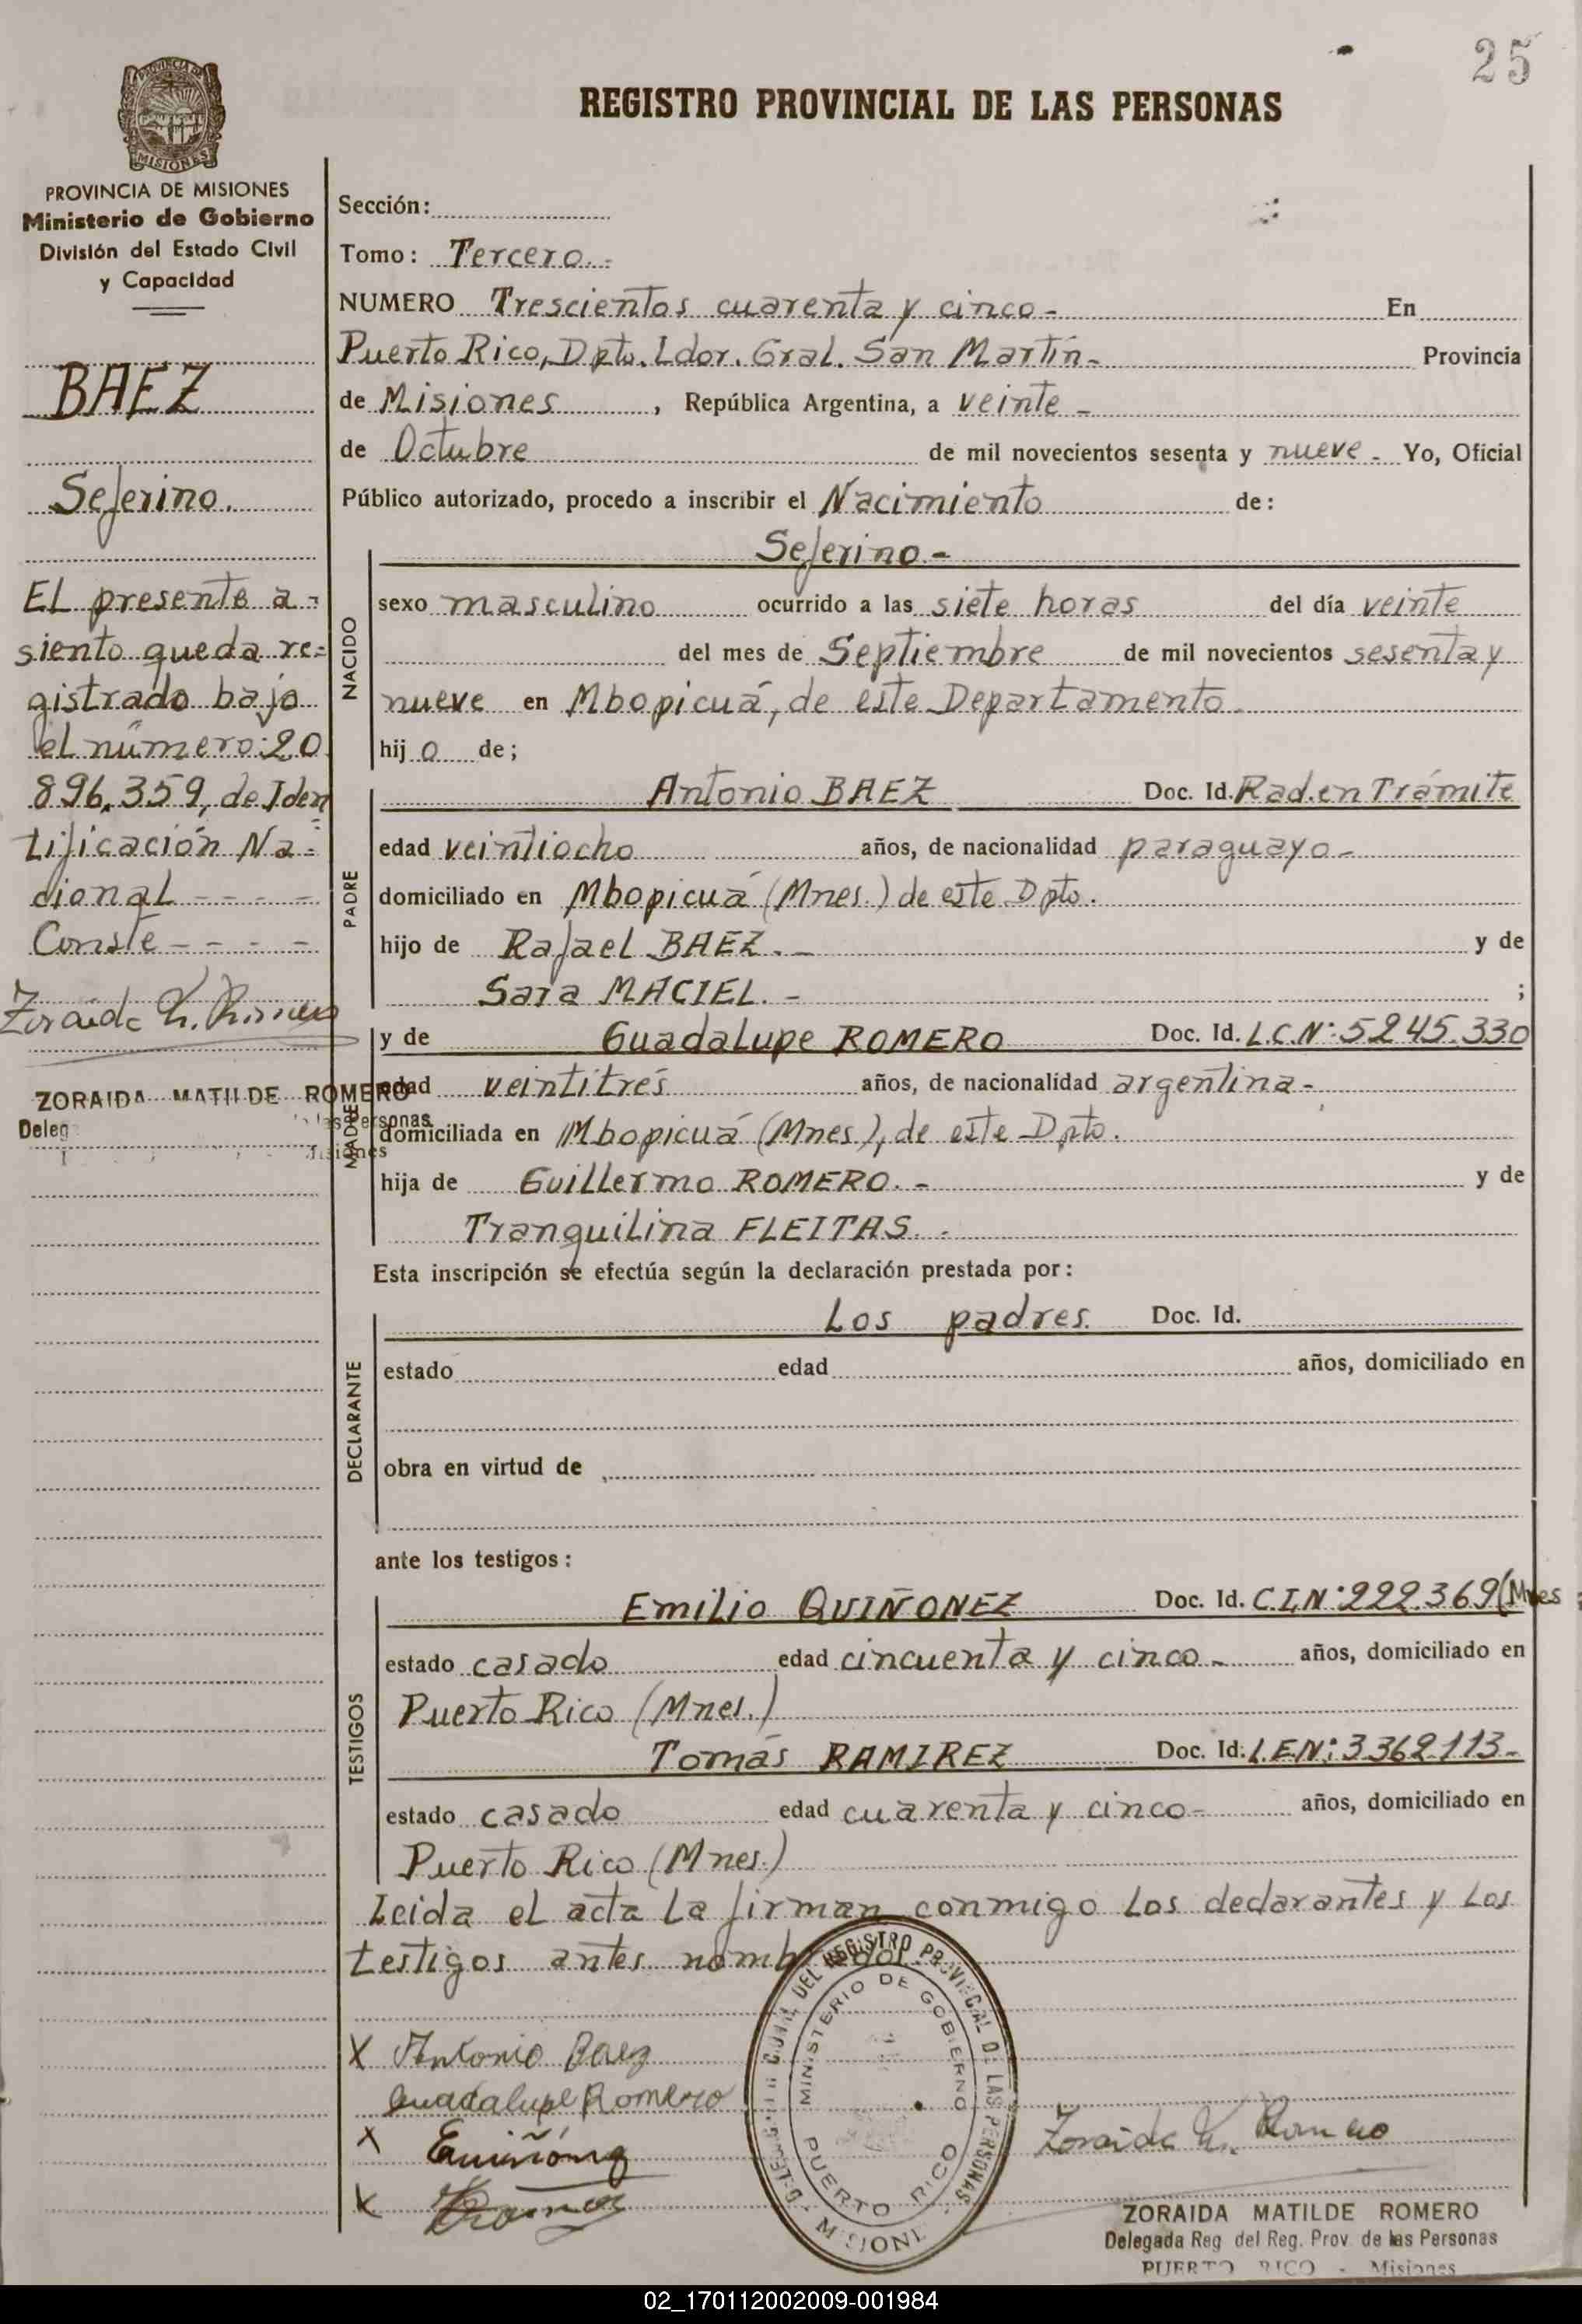 25
REGISTRO PROVINCIAL DE LAS PERSONAS
PROVINCIA DE MISIONES
Ministerio de Gobierno
División del Estado Civil
y Capacidad
BAEZ
Seferino.
EL presente a-
siento queda re-
gistrado bajo
el número: 20
896.359, de Iden
tificación Na-
cional - - - -
Conste - - - -
Zoraida M. Romero
ZORAIDA MATILDE ROMERO
Sección:
Tomo: Tercero.-
NUMERO Trescientos cuarenta y cinco - En
Puerto Rico, Dpto. Ldor. Gral. San Martín- Provincia
de Misiones , República Argentina, a veinte -
de Octubre de mil novecientos sesenta y nueve - Yo, Oficial
Público autorizado, procedo a inscribir el Nacimiento de:
Seferino.-
NACIDO
sexo masculino ocurrido a las siete horas del día veinte
del mes de Septiembre de mil novecientos sesenta y
nueve en Mbopicuá, de este Departamento.
hij o de;
PADRE
Antonio BAEZ Doc. Id. Rad. en Trámite
edad veintiocho años, de nacionalidad paraguayo-
domiciliado en Mbopicuá (Mnes.) de este Dpto.
hijo de Rafael BAEZ.- y de
Sara MACIEL.- ;
MADRE
y de Guadalupe ROMERO Doc. Id. L.C.N: 5245.330
edad veintitrés años, de nacionalidad argentina-
domiciliada en Mbopicuá (Mnes), de este Dpto.
hija de Guillermo ROMERO.- y de
Tranquilina FLEITAS.-
Esta inscripción se efectúa según la declaración prestada por:
DECLARANTE
Los padres. Doc. Id.
estado edad años, domiciliado en
obra en virtud de
ante los testigos:
TESTIGOS
Emilio QUIÑONEZ Doc. Id. C.I.N: 222.369 (Mnes
estado casado edad cincuenta y cinco- años, domiciliado en
Puerto Rico (Mnes.)
Tomás RAMIREZ Doc. Id: L.E.N: 3.362.113-
estado casado edad cuarenta y cinco- años, domiciliado en
Puerto Rico (Mnes.)
Leida el acta la firman conmigo los declarantes y los
testigos antes nombrados.
X Antonio Baez
Guadalupe Romero
X
X
DEL REGISTRO PROVINCIAL DE LAS PERSONAS
MINISTERIO DE GOBIERNO
PUERTO RICO
MISIONES
Zoraida M. Romero
ZORAIDA MATILDE ROMERO
Delegada Reg del Reg. Prov de las Personas
PUERTO RICO - Misiones
02_170112002009-001984